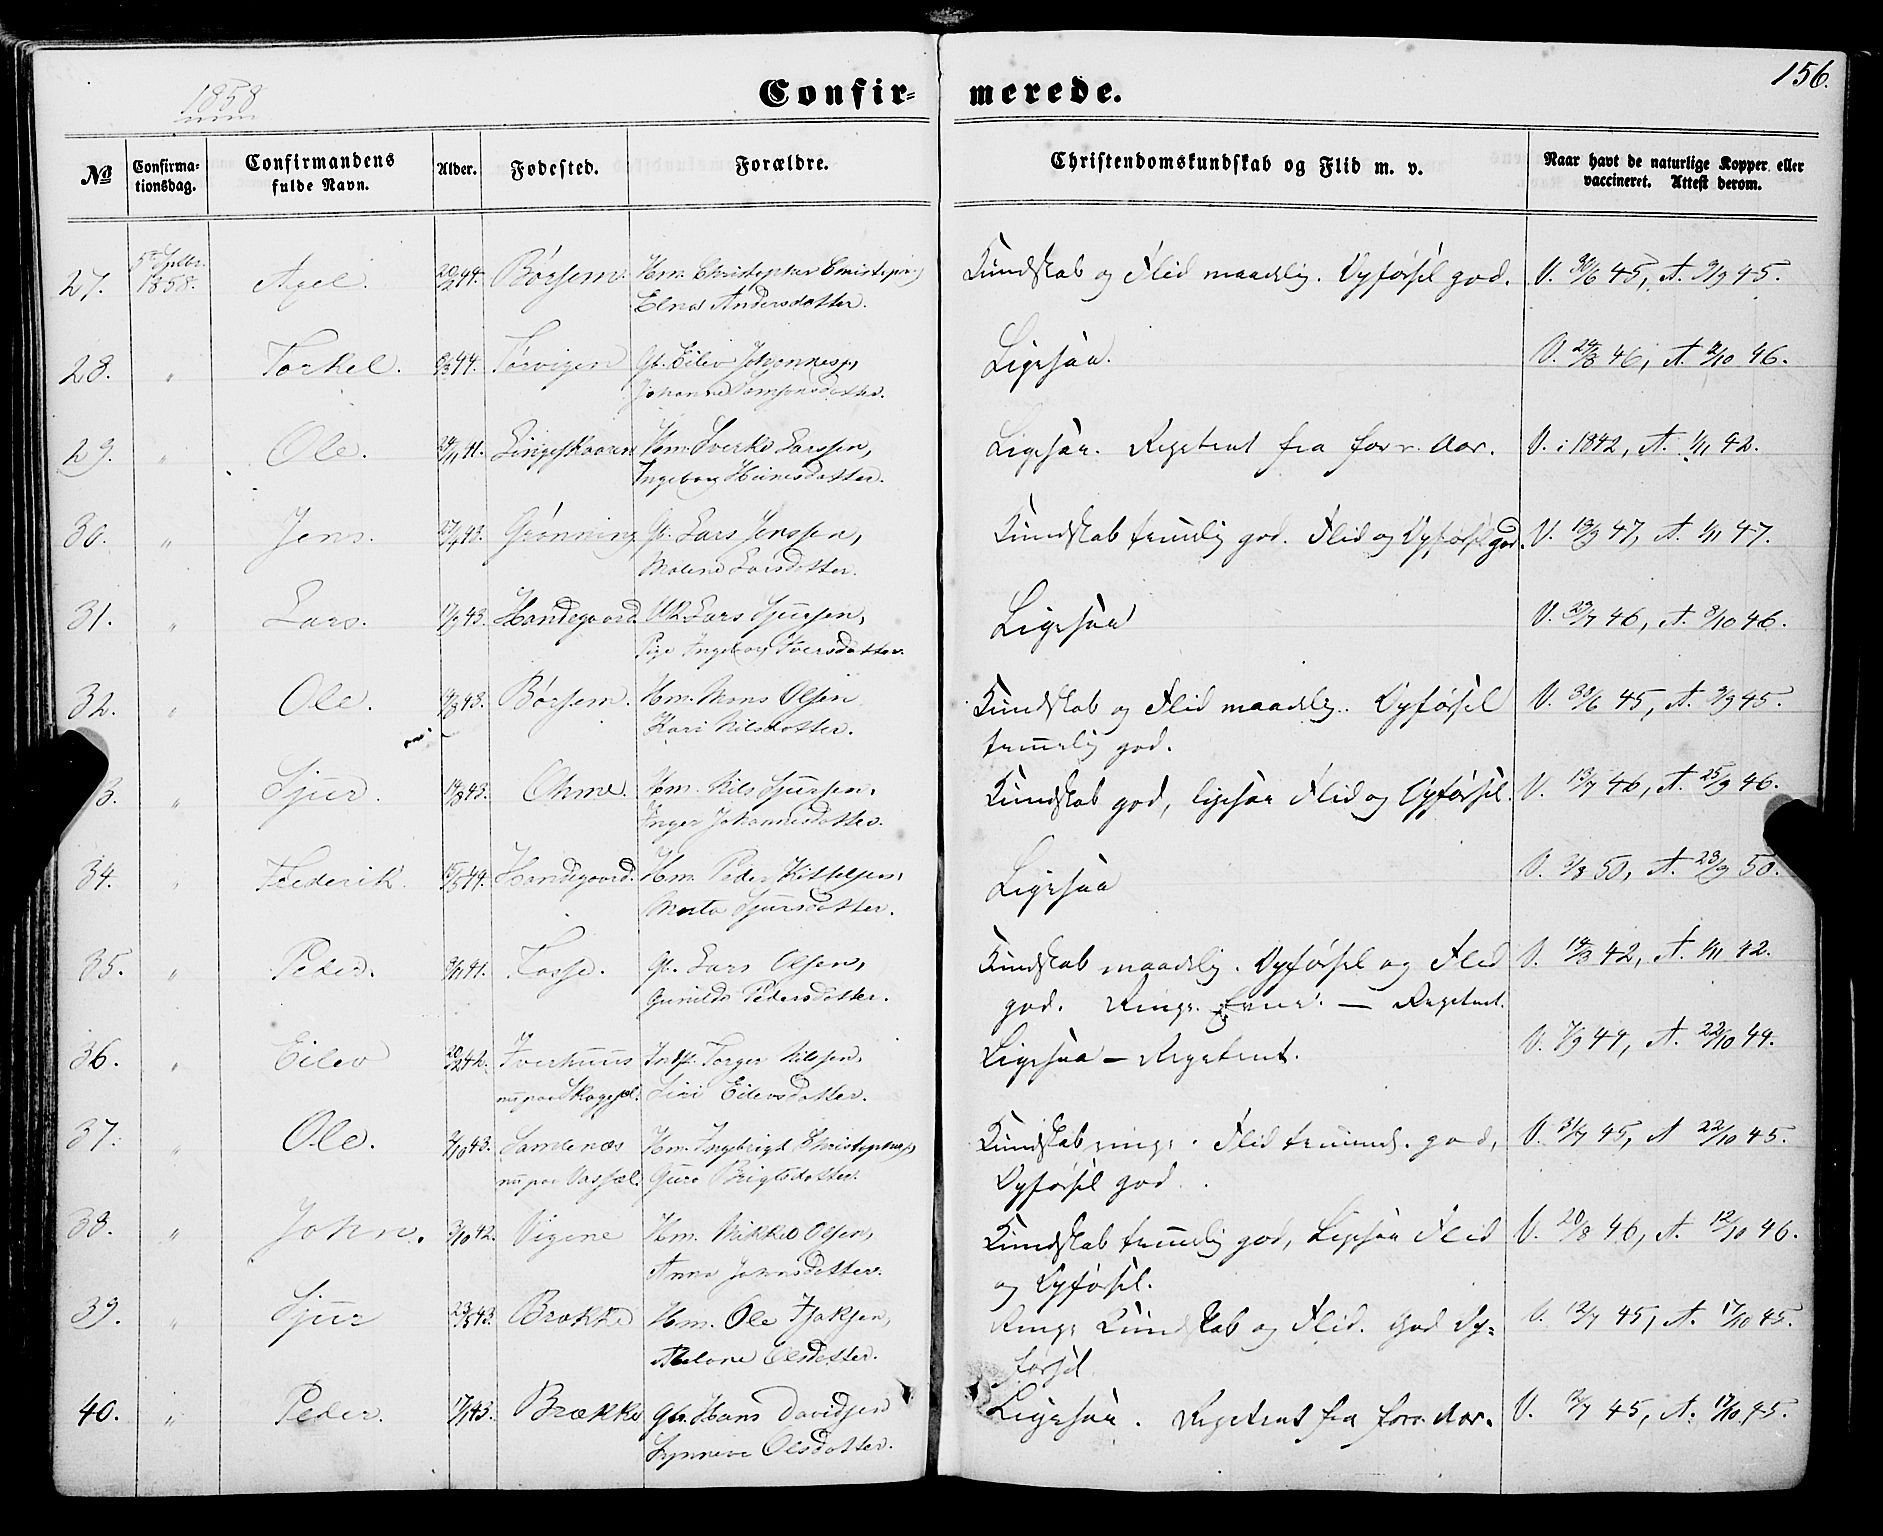 1858
Confirmerede.
156.
No
Confirmationsdag.
Confirmandens fulde Navn.
Alder.
Fødested.
Forældre.
Christendomskundskab og Flid m. v.
Naar havt de naturlige Kopper eller vaccineret. Attest derom.
27. 1858. Axel. 44. Børsem. Hm. Christopher
Elna Andersdatter.
Kundskab og Flid maadelig. Opførsel god. V. 30/6 45, A. 9/9 45.
28. " Torkel. 44. Tørvigen Gb. Eilev Johanness,
Johanne Samsonsdatter.
Ligesaa. V. 24/8 46, A. /10 46.
29. " Ole. 24/11 41. Hm. Sverke Larssen,
Ingeborg Heinesdatter.
Ligesaa. Repetent fra forr. Aar. V. i 1842, A. 1/11 42.
30. " Jens. 43. Grønning Gb. Lars Jenssen,
Malene Larsdatter.
Kundskab temelig god. Flid og Opførsel god. V. 13/9 47, A. 1/11 47.
31. " Lars. 43. Handegaard Lars Sjursen,
Pige Ingeborg Iversdatter.
Ligesaa V. 29/7 46, A. 8/10 46.
32. " Ole. 43. Børsem. Hm. Mons Olsen
Kari Nilsdatter.
Kundskab og Flid maadelig. Opførsel
temelig god.
V. 30/6 45, A. 9/9 45.
3. " Sjur. 14/8 43. Ohme. Hm. Nils Sjursen,
Inger Johannesdatter.
Kundskab god, ligesaa Flid og Opførsel. V. 13/7 46, A. 25/9 46.
34. " Frederik. 44. Handegaard. Hm. Peder Kittelsen,
Marta Sjursdatter.
Ligesaa V. 50, A. 23/9 50.
35. " Peder. 41. Tasse. Gb. Lars Olsen,
Gunilda Pedersdatter.
Kundskab maadelig. Opførsel og Flid
god. Ringe Evner. — Repetent.
V. 14/8 42, A. 1/11 42.
36. " Eilev 42. Iverhuus
nu paa Skagesel.
Torger Nilsen,
Siri Eilevsdatter.
Ligesaa — Repetent. V. 7/9 44, A. 22/10 44.
37. " Ole. 43. Sandenæs
nu paa Vassel.
Hm. Ingebrigt Christophers,
Guro Brigtsdatter.
Kundskab ringe. Flid temmel. god,
Opførsel god.
V. 31/7 45, A. 22/10 45.
38. " John. 42. Vigene Hm. Mikkel Olsen,
Anna Johnsdatter.
Kundskab temelig god, Ligesaa Flid
og Opførsel.
V. 20/8 46, A. 12/10 46.
39. " Sjur 43. Brække Hm. Ole Isaksen,
Olsdatter.
Ringe Kundskab og Flid. God Op-
førsel.
V. 12/7 45, A. 17/10 45.
40. " Peder. 43. Brække Gbr. Hans Davidsen
Synneva Olsdatter.
Ligesaa. Repetent fra forr. Aar. V. 12/7 45, A. 17/10 45.